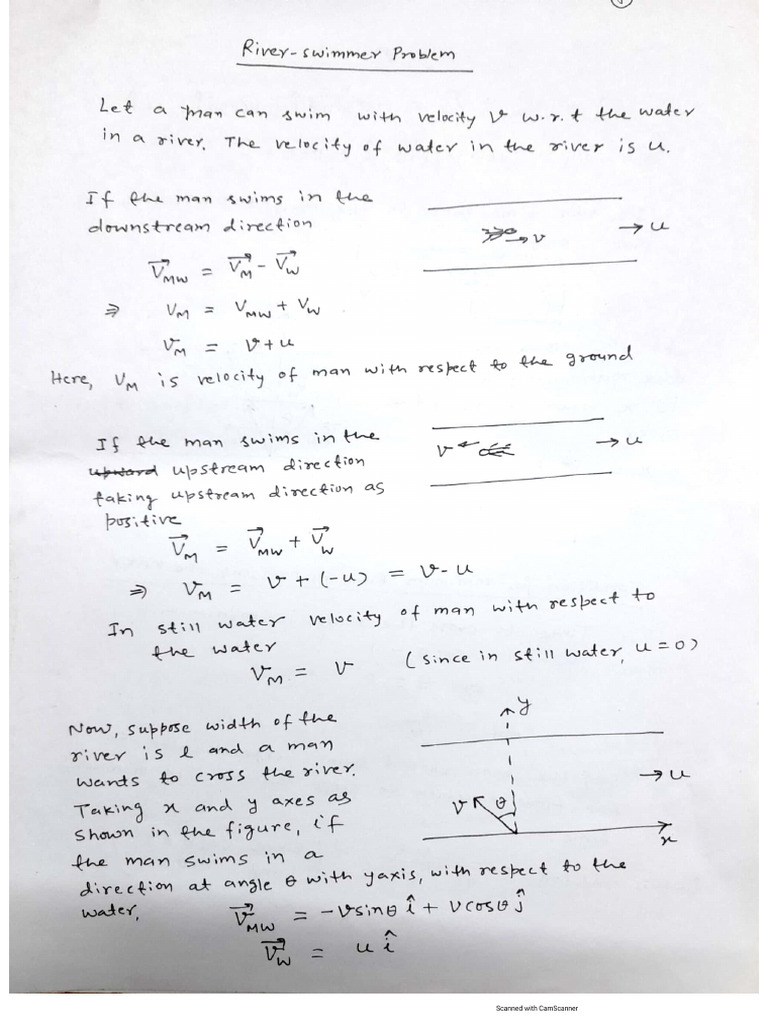 River-swimmer Problem
Let a man can swim with velocity v w.r.t the water
in a river. The velocity of water in the river is u.
If the man swims in the
downstream direction
→ v
→ u
V⃗_MW = V⃗_M - V⃗_W
⇒ V_M = V_MW + V_W
V_M = v + u
Here, V_M is velocity of man with respect to the ground
If the man swims in the
upward upstream direction
taking upstream direction as
positive
v ←
→ u
V⃗_M = V⃗_MW + V⃗_W
⇒ V_M = v + (-u) = v - u
In still water velocity of man with respect to
the water
V_M = v (since in still water, u = 0)
Now, suppose width of the
river is l and a man
wants to cross the river.
Taking x and y axes as
shown in the figure, if
the man swims in a
direction at angle θ with y axis, with respect to the
water,
y
→ u
v θ
x
V⃗_MW = -v sinθ î + v cosθ ĵ
V⃗_W = u î
Scanned with CamScanner